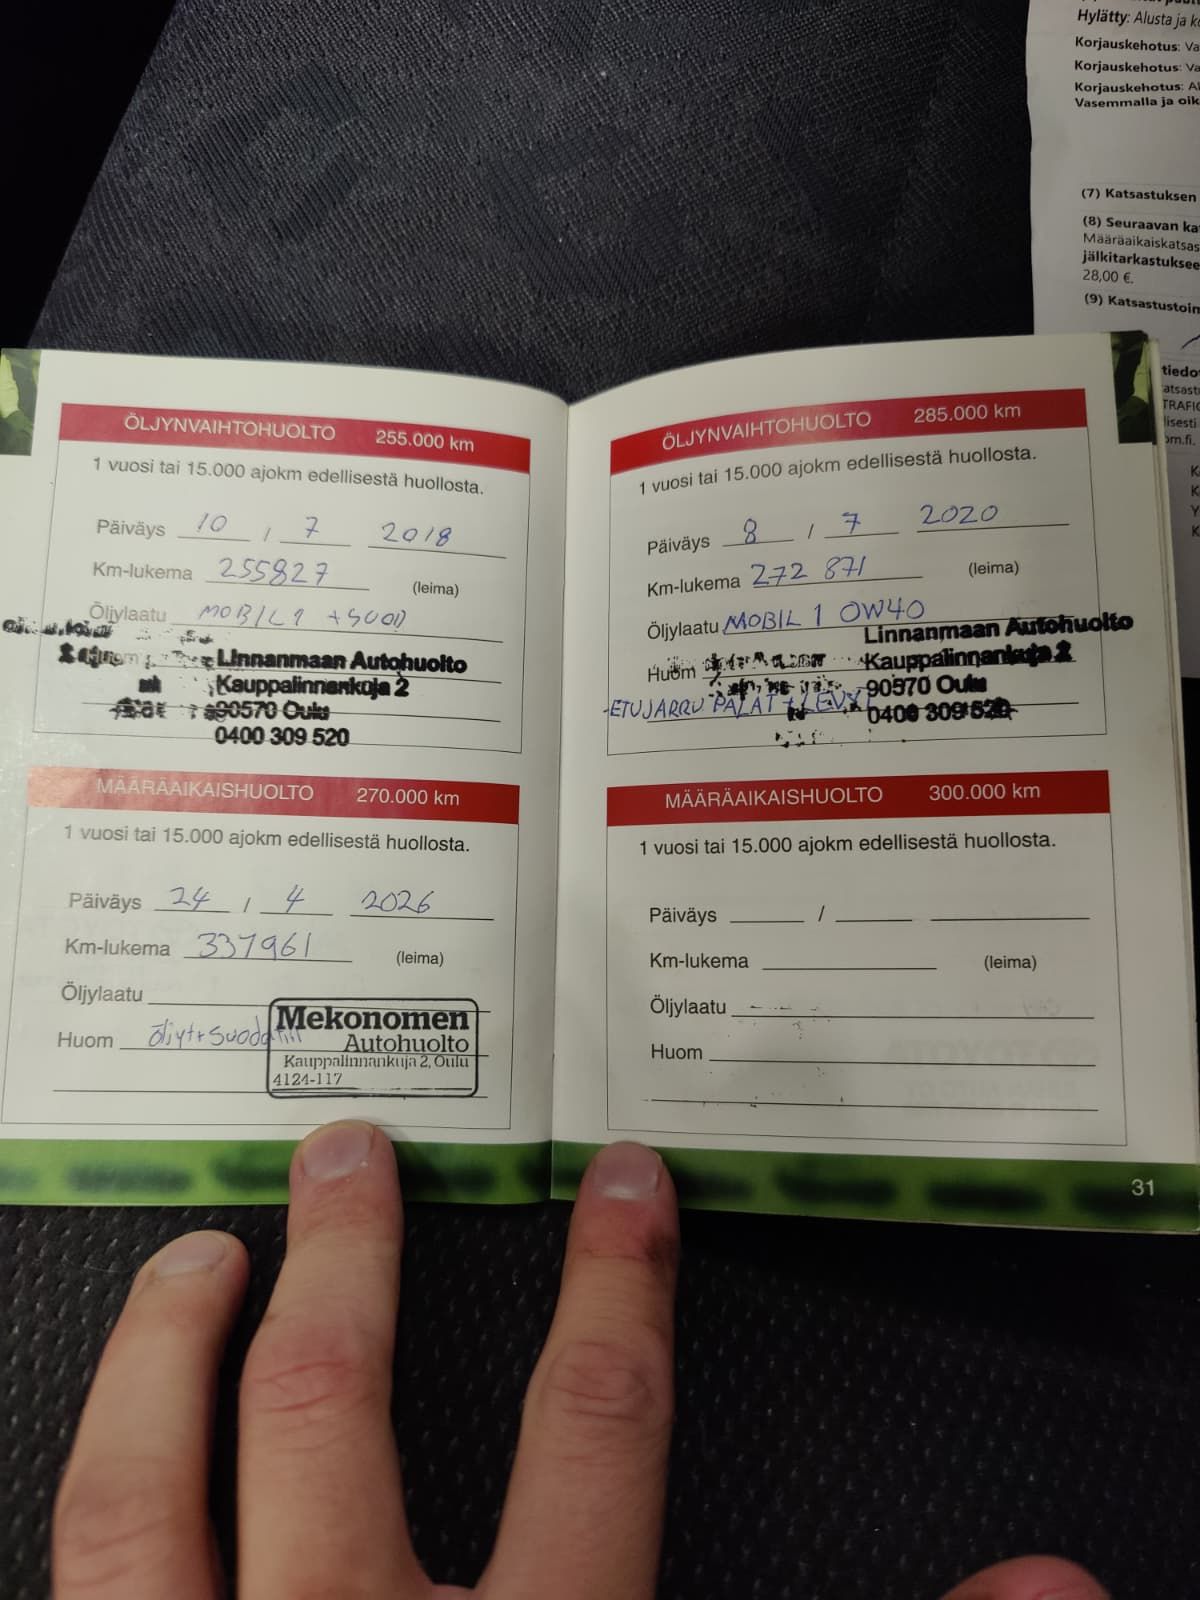 Hylätty: Alusta ja
Korjauskehotus:
Korjauskehotus:
Korjauskehotus:
Vasemmalla ja
(7) Katsastuksen
(8) Seuraavan
jälkitarkastukseen
28,00 €.
(9)
ÖLJYNVAIHTOHUOLTO 255.000 km
1 vuosi tai 15.000 ajokm edellisestä huollosta.
Päiväys 10 / 7 2018
Km-lukema 255827 (leima)
Öljylaatu MOBIL 1 +SUOD
Linnanmaan Autohuolto
Kauppalinnankuja 2
90570 Oulu
0400 309 520
MÄÄRÄAIKAISHUOLTO 270.000 km
1 vuosi tai 15.000 ajokm edellisestä huollosta.
Päiväys 24 / 4 2026
Km-lukema 337961 (leima)
Öljylaatu
Huom öljyt+suodatin
Mekonomen
Autohuolto
Kauppalinnankuja 2, Oulu
4124-117
ÖLJYNVAIHTOHUOLTO 285.000 km
1 vuosi tai 15.000 ajokm edellisestä huollosta.
Päiväys 8 / 7 2020
Km-lukema 272 871 (leima)
Öljylaatu MOBIL 1 0W40
Huom
-ETUJARRU PALAT + LEVYT
Linnanmaan Autohuolto
Kauppalinnankuja 2
90570 Oulu
0400 309 520
MÄÄRÄAIKAISHUOLTO 300.000 km
1 vuosi tai 15.000 ajokm edellisestä huollosta.
Päiväys /
Km-lukema (leima)
Öljylaatu
Huom
31